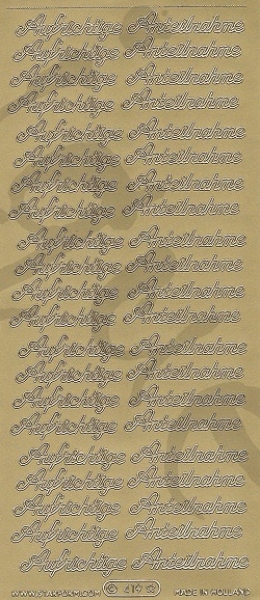 Aufrichtige Anteilnahme
Aufrichtige Anteilnahme
Aufrichtige Anteilnahme
Aufrichtige Anteilnahme
Aufrichtige Anteilnahme
Aufrichtige Anteilnahme
Aufrichtige Anteilnahme
Aufrichtige Anteilnahme
Aufrichtige Anteilnahme
Aufrichtige Anteilnahme
Aufrichtige Anteilnahme
Aufrichtige Anteilnahme
Aufrichtige Anteilnahme
Aufrichtige Anteilnahme
Aufrichtige Anteilnahme
Aufrichtige Anteilnahme
Aufrichtige Anteilnahme
Aufrichtige Anteilnahme
Aufrichtige Anteilnahme
Aufrichtige Anteilnahme
Aufrichtige Anteilnahme
WWW.STARFORM.COM © MADE IN HOLLAND